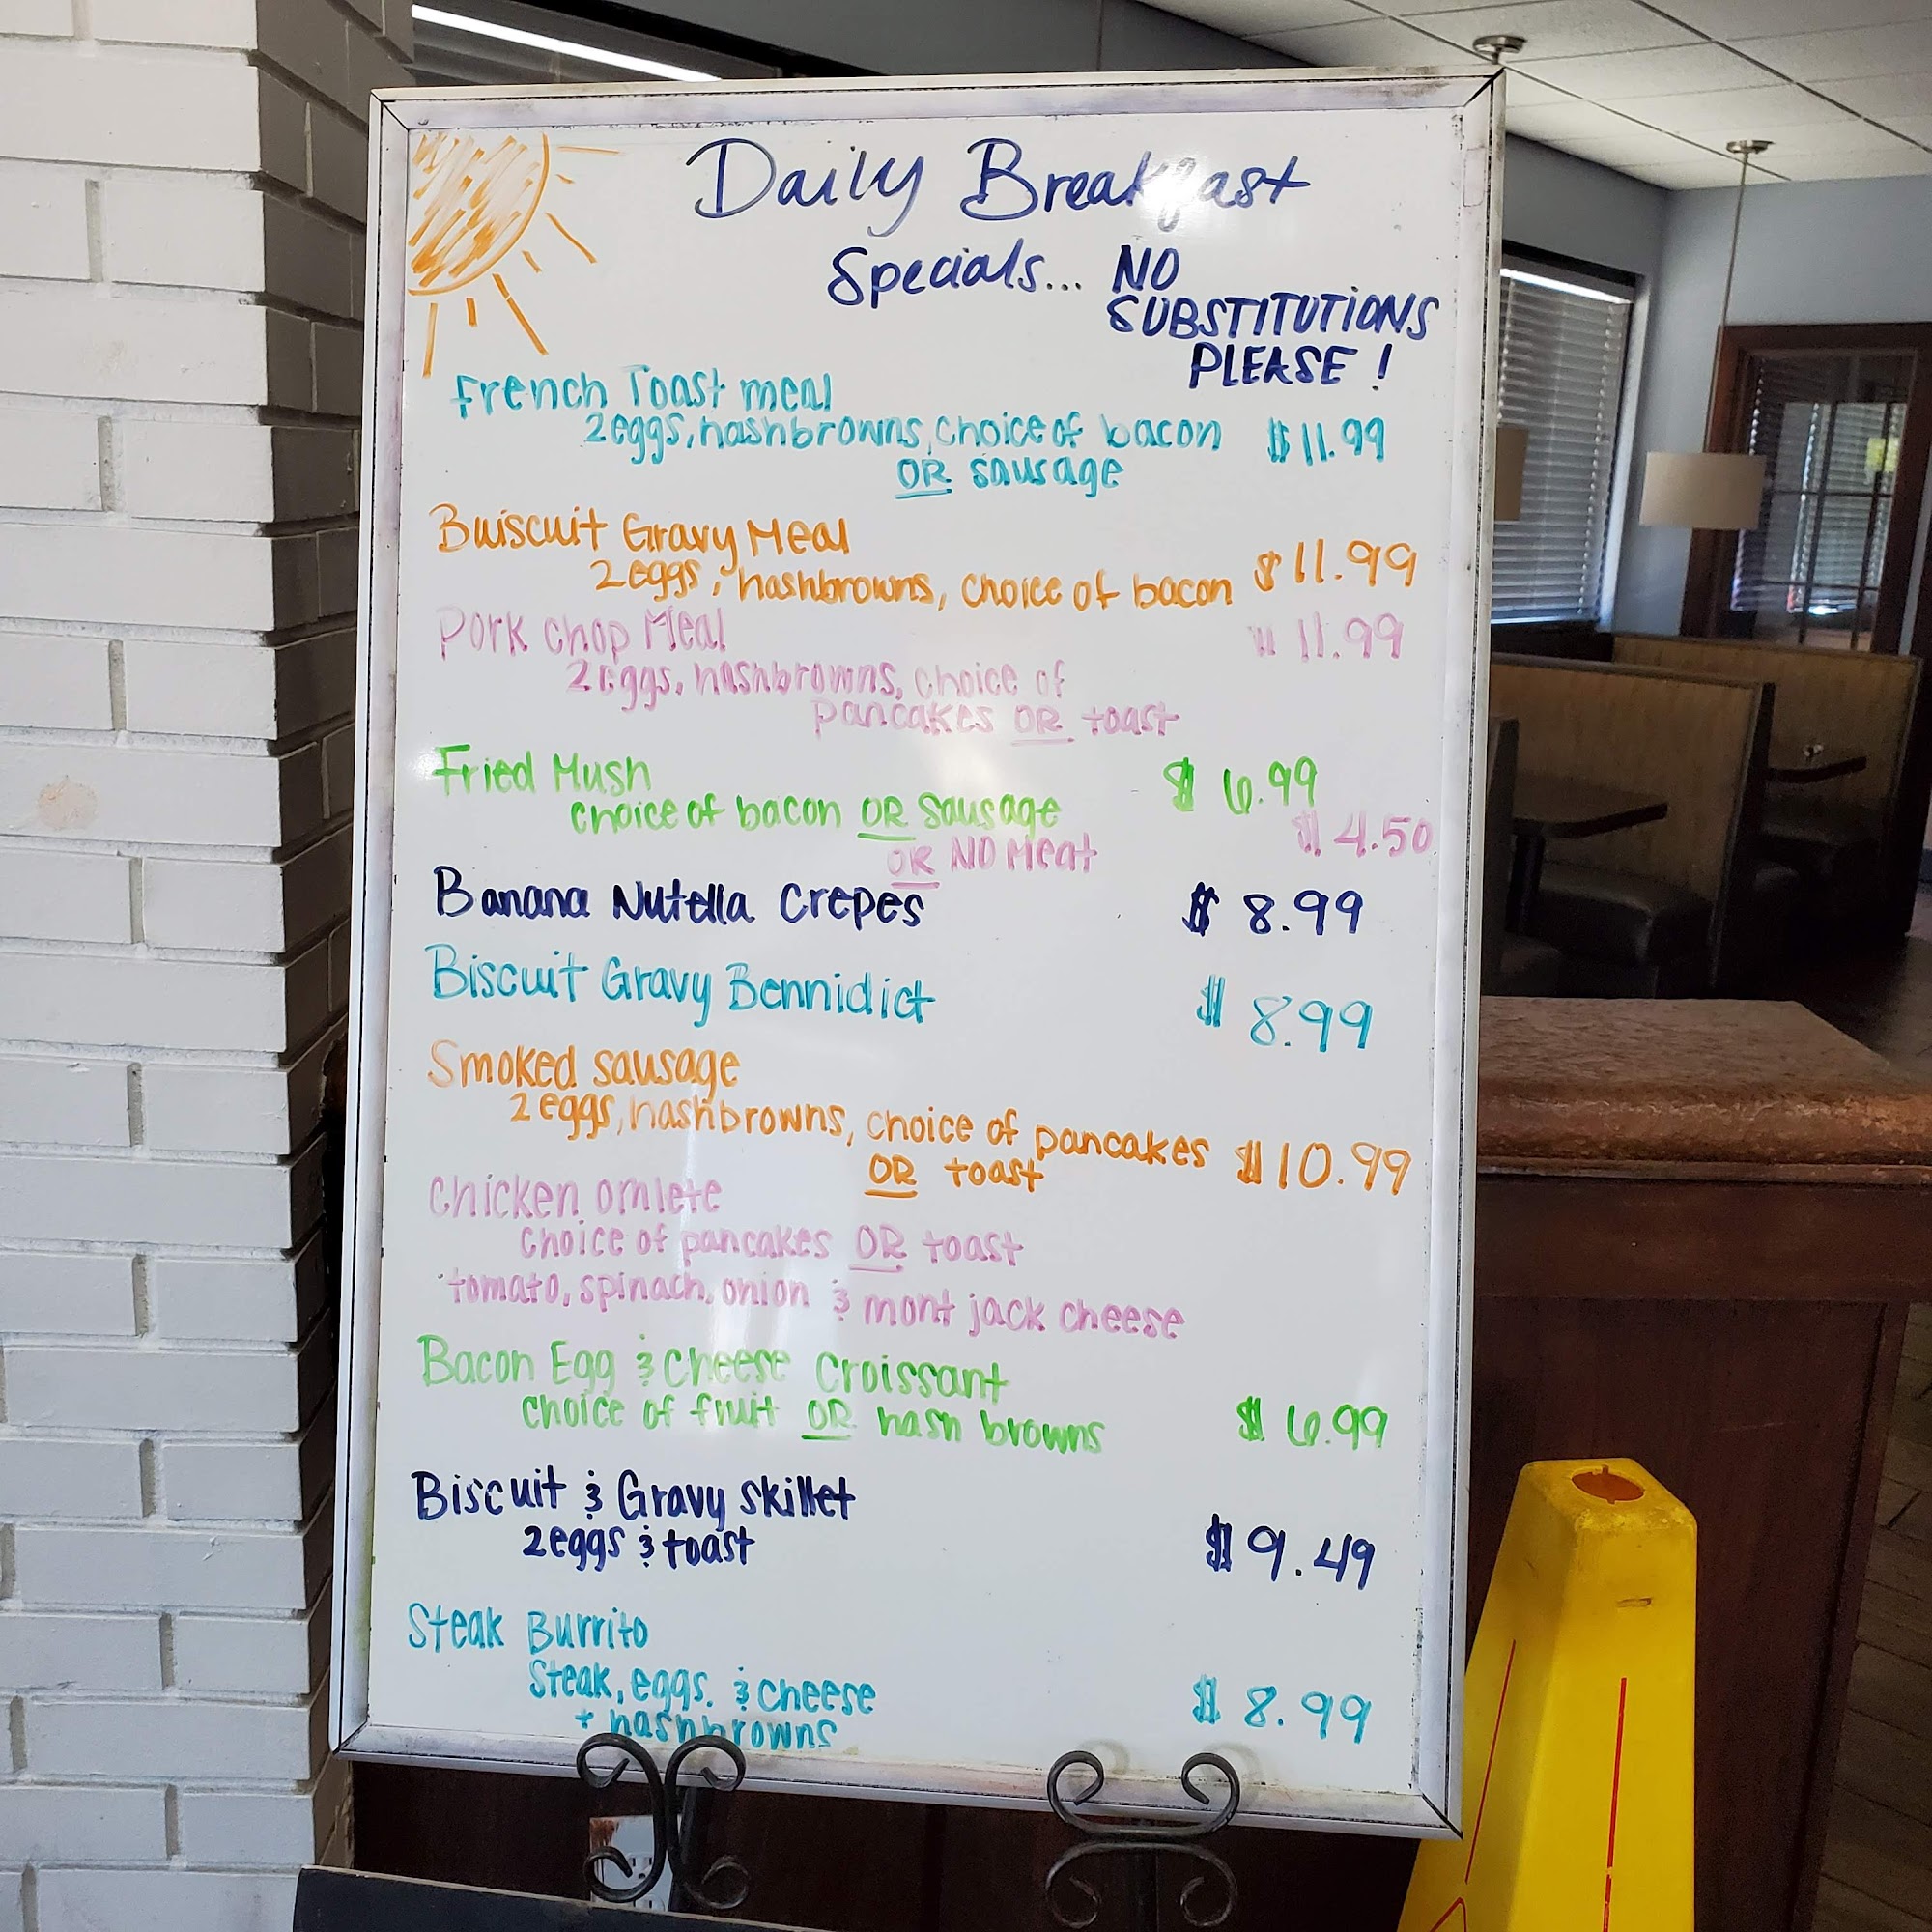 Daily Breakfast
Specials... NO
SUBSTITUTIONS
PLEASE !
French Toast meal
2 eggs, hashbrowns, choice of bacon $ 11.99
OR sausage
Buiscuit Gravy Meal
2 eggs, hashbrowns, choice of bacon $ 11.99
Pork Chop Meal $ 11.99
2 eggs, hashbrowns, choice of
pancakes OR toast
Fried Mush $ 6.99
choice of bacon OR sausage
OR NO Meat $ 4.50
Banana Nutella Crepes $ 8.99
Biscuit Gravy Bennidict $ 8.99
Smoked sausage
2 eggs, hashbrowns, choice of pancakes $ 10.99
OR toast
Chicken omlete
choice of pancakes OR toast
tomato, spinach, onion & mont jack cheese
Bacon Egg & Cheese Croissant
choice of fruit OR hash browns $ 6.99
Biscuit & Gravy Skillet
2 eggs & toast $ 9.49
Steak Burrito
Steak, eggs. & cheese $ 8.99
+ hashbrowns